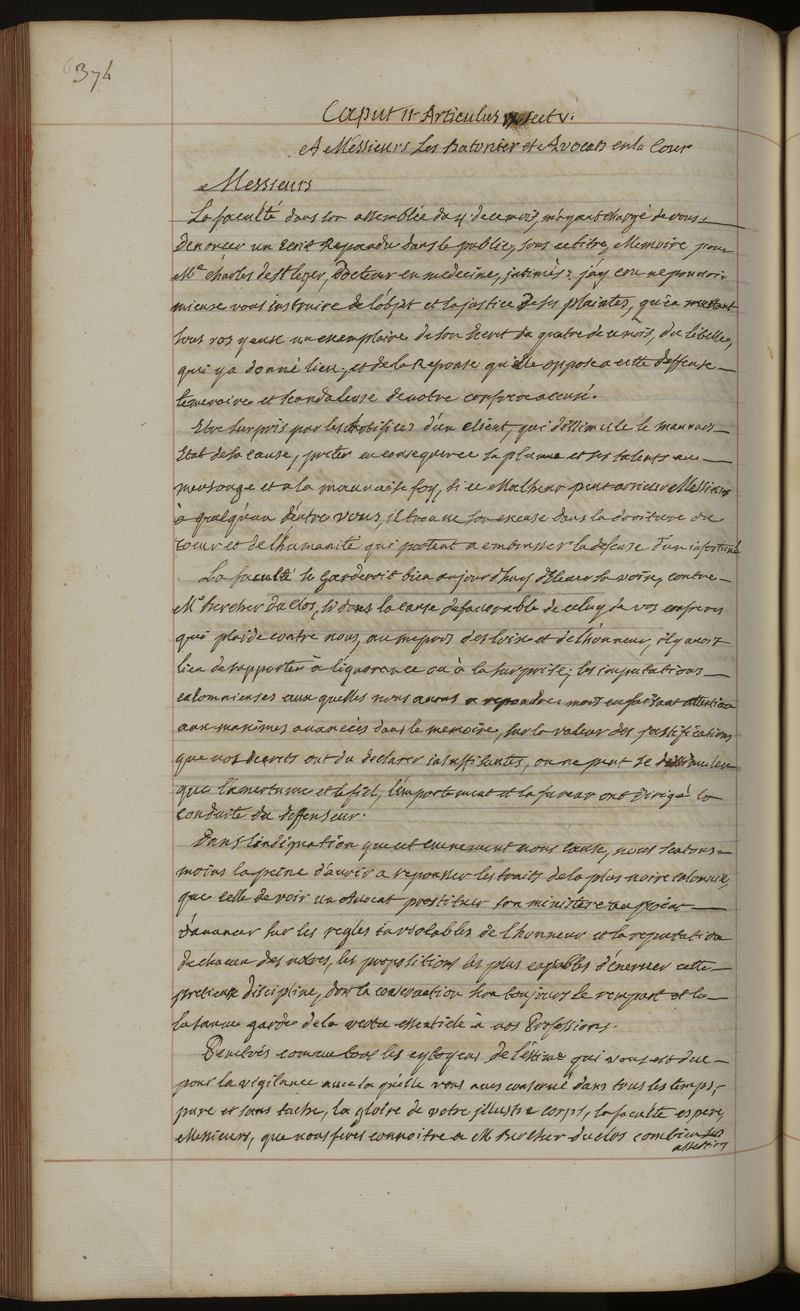 374
Caput II Articulus sect V.
A Messieurs Les Batonier et Avocats en la Cour
Messieurs
La faculté dans son assemblée du 4. de ce mois, m'ayant chargé de vous
Denoncer un Ecrit Repandu dans le public, sous ce titre, Memoire, pour
Me. charles de St leger, Docteur en medecine, intimés: j'ay cru ne pouvoir
mieux vous instruire de l'objet et la justice de ses plaintes, qu'en mettant
sous vos yeux un exemplaire de son Decret du quatre de ce mois, du libelle,
qui y a donné lieu, et de la Reponse qu'elle oppose a cette deffense
temeraire et scandaleuse de notre confrere accusé.
Etre surpris par les Artifices d'un client, qui dissimule le mauvais
Etat de sa cause, preter en consequence sa plume et ses talents au
mensonge et a la mauvaise foy, si ce Malheur peut arriver Messieurs
à quelqu'un d'entre vous, il trouve son excuse dans la droiture du
coeur et de l'humanité qui portent a embrasser la defense d'un infortuné
La faculté se Garderoit bien aujourd'huy d'Elever sa voix, contre
Me Bercher Duclos, si dans la cause defavorable de celuy de vos confreres
qui plaide contre nous, au mepris des loix et de l'honneur, il y avoit
lieu de rapporter à l'ignorance ou à la surprise; les imputations
calomnieuses aux quelles nous avons a repondre mais en faisant attention
aux maximes avancées dans le memoire, sur la valeur des justifications
que nos Decrets ont du declarer insuffisantes, on ne peut se dissimuler
que l'amertume et le fiel, l'emportement et la fureur ont Dirigé la
conduite du deffenseur.
Dans l'indignation que cet evenement nous cause, nous sentons
moins la peine d'avoir a repousser les traits de la plus noire calomnie,
que celle de voir un Avocat prostituer son ministere au point
d'avancer sur les regles inviolables de l'honneur et la reputation
de chacun des notres, les propositions les plus capables d'énerver cette
pretieuse discipline, dont la conservation sera toujours le rempart et la
la sauve garde de la vertu essentiele à nos Professions.
Penetrés comme tous les cytoyens de l'éstime qui vous est due
pour la vigilance avec la quelle vous avez conservé dans tous les temps,
pure et sans tache, la gloire de votre illustre corps, la faculté espere,
Messieurs, que vous ferez connoitre a M Bercher duclos combien ses
assertions